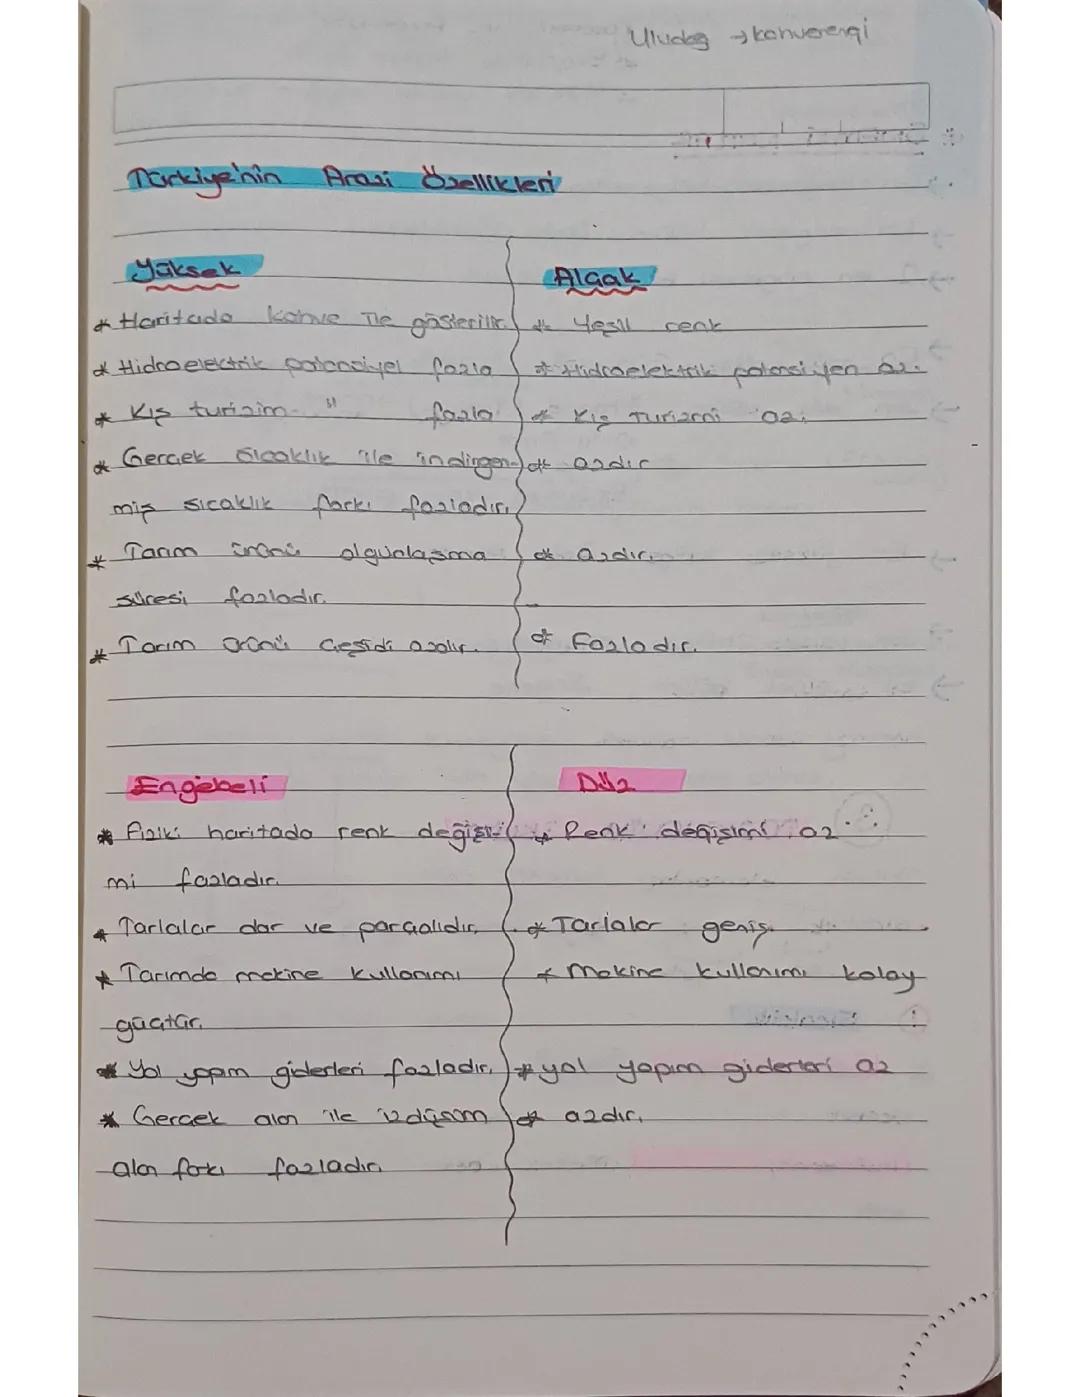 Uludağ → konverengi
Türkiye'nin Arazi Özellikleri
Yüksek
* Haritada kahve ile gösterilir.
* Hidroelektrik potansiyel fazla
* Kış turizim " fazla
* Gerçek sıcaklık ile indirgen-
miş sıcaklık farkı fazladır.
* Tarım ürünü olgunlaşma
süresi fazladır.
* Tarım ürünü çeşidi azalır.
Alçak
* Yeşil renk
* Hidroelektrik potansiyen az.
* Kış Turizmi az.
* azdır
* azdır.
* Fazladır.
Engebeli
* Fiziki haritada renk değişi-
mi fazladır.
* Tarlalar dar ve parçalıdır.
* Tarımda makine kullanımı
güçtür.
* Yol yapım giderleri fazladır.
* Gerçek alan ile izdüşüm
alan farkı fazladır.
Düz
* Renk değişimi az
* Tarlalar geniş.
* Makine kullanımı kolay
* yol yapım giderleri az
* azdır.